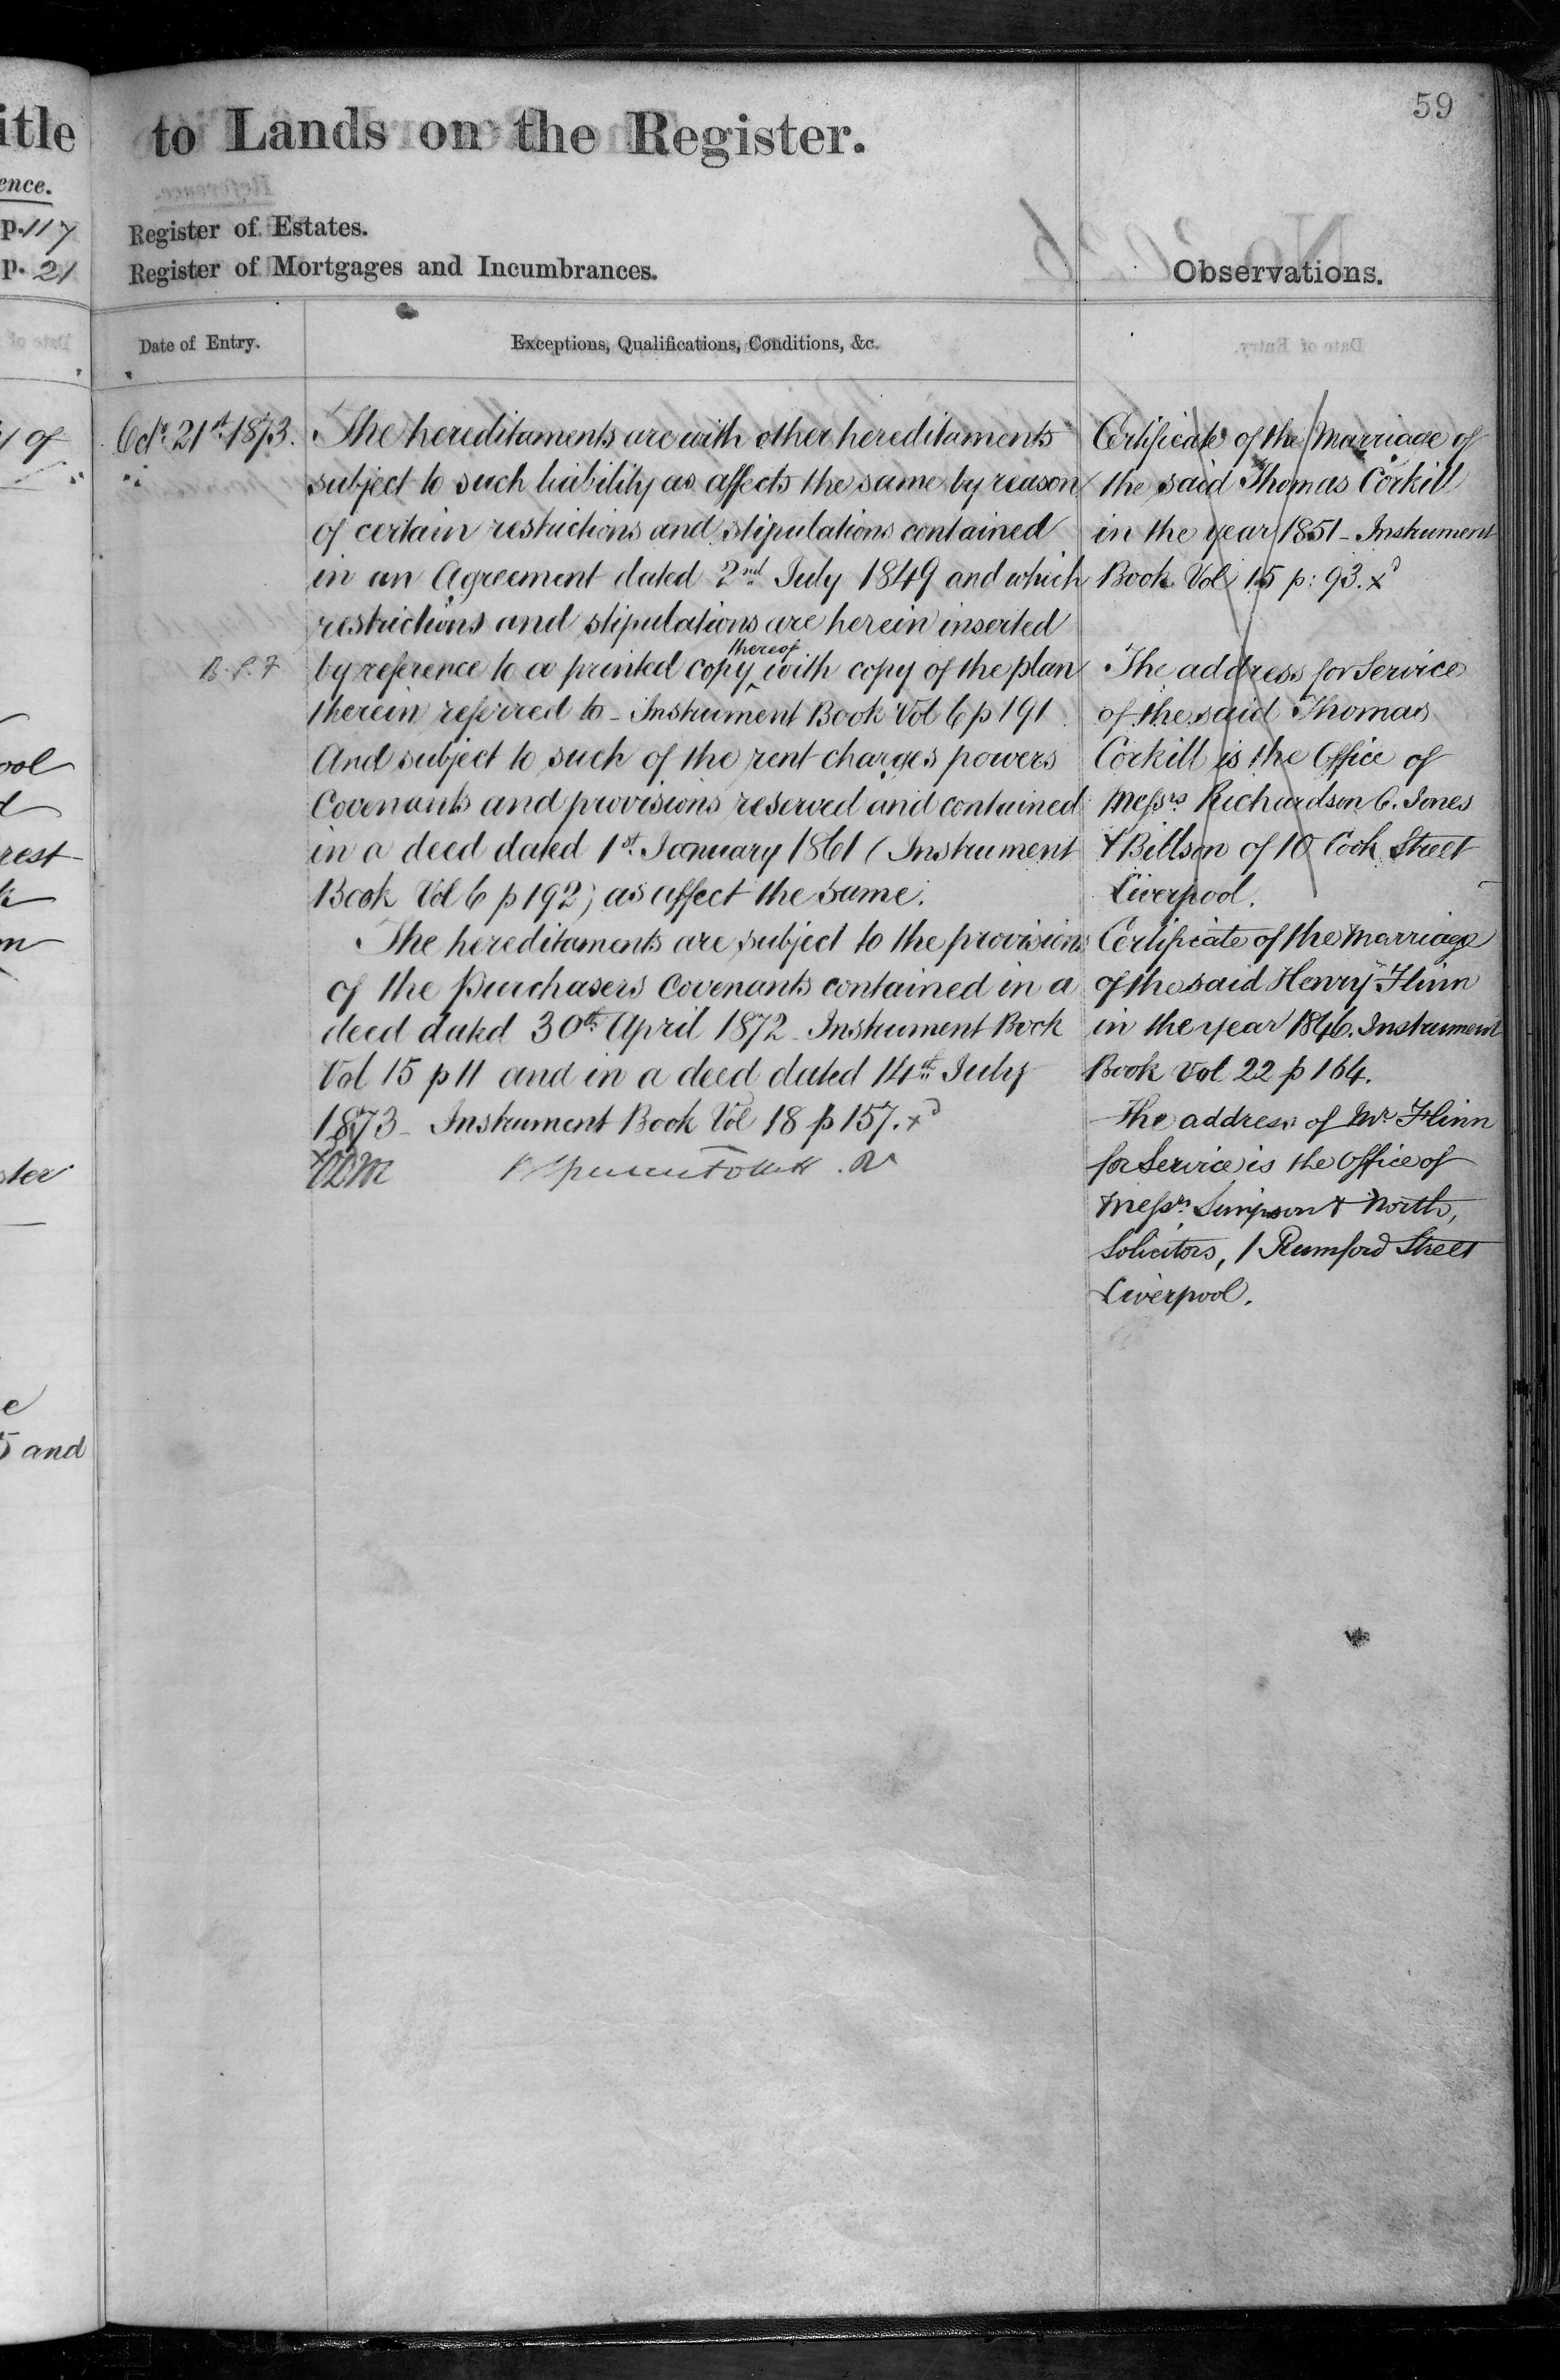 59
itle
to Lands on the Register.
ence.
p. 117
p. 21
Register of Estates.
Register of Mortgages and Incumbrances.
Observations.
Date of Entry.
Exceptions, Qualifications, Conditions, &c.
of
ool
rest
ster
5 and
Octr. 21st. 1873.
The hereditaments are with other hereditaments
subject to such liability as affects the same by reason
of certain restrictions and stipulations contained
in an Agreement dated 2nd July 1849 and which
restrictions and stipulations are herein inserted
thereof
by reference to a printed copy ^ with copy of the plan
therein referred to - Instrument Book Vol 6 p 191
And subject to such of the rent charges powers
Covenants and provisions reserved and contained
in a deed dated 1st. January 1861 (Instrument
Book Vol 6 p 192) as affect the same.
The hereditaments are subject to the provisions
of the Purchasers Covenants contained in a
deed dated 30th. April 1872 - Instrument Book
Vol 15 p 11 and in a deed dated 14th. July
1873 - Instrument Book Vol 18 p 157. xd
Certificate of the Marriage of
the said Thomas Corkill
in the year 1851 - Instrument
Book Vol 15 p: 93. xd
The address for Service
of the said Thomas
Corkill is the Office of
Messrs Richardson C. Jones
& Billson of 10 Cook Street
Liverpool.
Certificate of the Marriage
of the said Henry Flinn
in the year 1846. Instrument
Book Vol 22 p 164.
The address of Mr. Flinn
for Service is the Office of
Messrs. Simpson & North,
Solicitors, 1 Rumford Street
Liverpool.